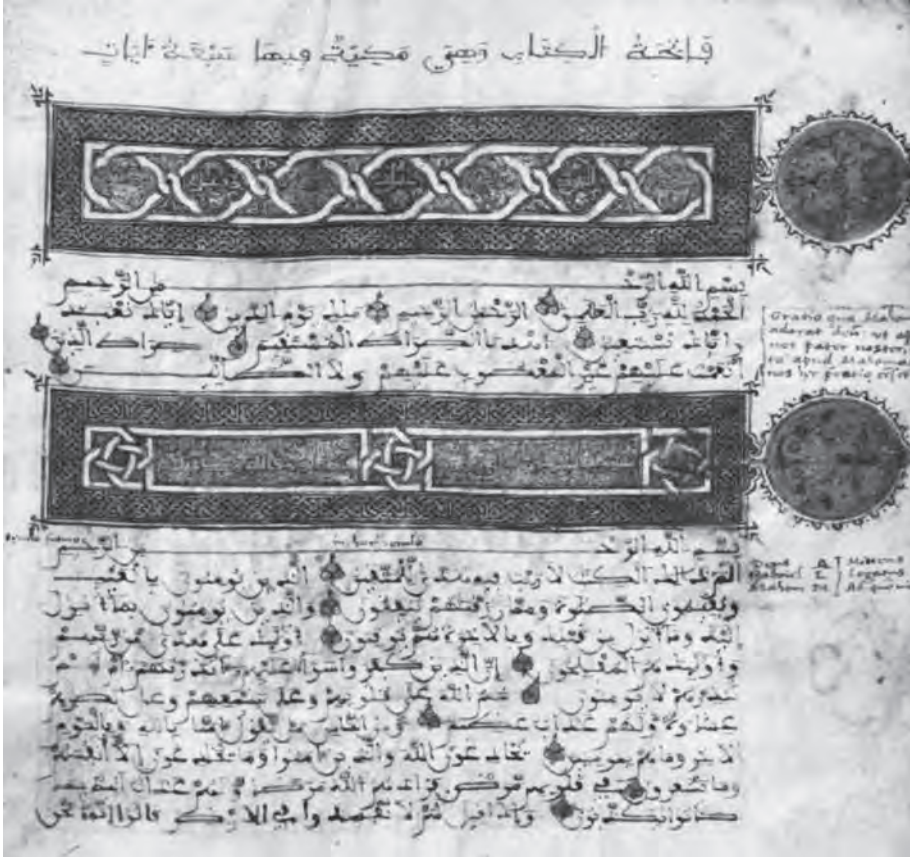 فاتحة الكتاب وهي مكية فيها سبعة ءايات
بسم الله الرحمن الرحيم
الحمد لله رب العلمين الرحمن الرحيم ملك يوم الدين إياك نعبد
وإياك نستعين اهدنا الصراط المستقيم صراط الذين
أنعمت عليهم غير المغضوب عليهم ولا الضالين
Oratio qua Mahom
adorat
nos pater noster,
apud Mahome
nos oratio
بسم الله الرحمن الرحيم
الم ذلك الكتب لا ريب فيه هدى للمتقين الذين يومنون بالغيب
ويقيمون الصلوة ومما رزقنهم ينفقون والذين يومنون بما أنزل
إليك وما أنزل من قبلك وبالاخرة هم يوقنون أوليك على هدى من ربهم
وأوليك هم المفلحون إن الذين كفروا سواء عليهم ءانذرتهم أم لم
تنذرهم لا يومنون ختم الله على قلوبهم وعلى سمعهم وعلى أبصرهم
غشوة ولهم عذاب عظيم ومن الناس من يقول ءامنا بالله وباليوم
الاخر وما هم بمومنين يخدعون الله والذين ءامنوا وما يخدعون إلا أنفسهم
وما يشعرون في قلوبهم مرض فزادهم الله مرضا ولهم عذاب أليم بما
كانوا يكذبون وإذا قيل لهم لا تفسدوا في الارض قالوا إنما نحن
A
Gabriel L
Mahom M